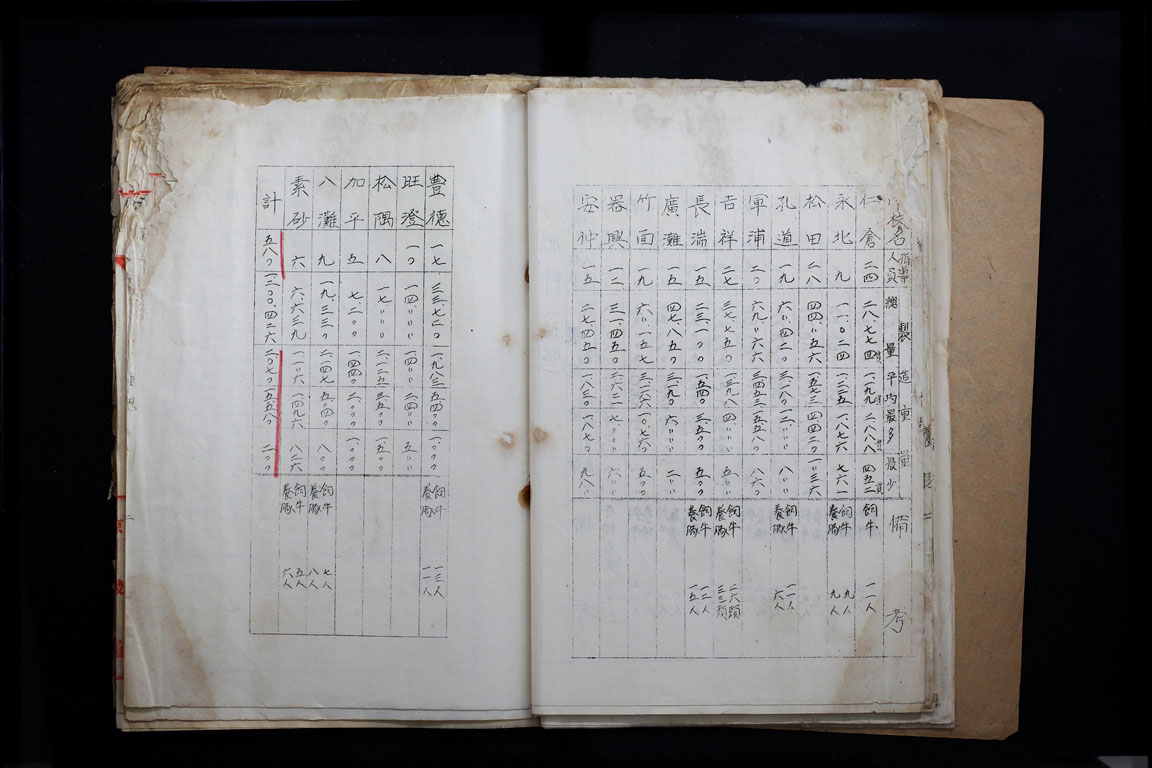 校名 指導人員 製造重量 總量 平均 最多 最少 備考
仁倉 二四 二八、七七四 一、一九九 二、八八八 四五二 飼牛 一一人
永北 九 一一、〇二四 一、二二五 一、八七六 七六一 飼牛 九人 養豚 九人
松田 二八 四四、〃五六 一、五七三 四、四二〇
孔道 一九 六〇、四二〇 三、一八〇 一二、〃〃〃 八〃〃 飼牛 一一人 養豚 六人
軍浦 二〇 六九、〃六六 三、四五三 一五、五八〇 八六〇
吉祥 二七 三七、七五〇 一、三九八 四、〃〃〃 五〃〃 飼牛 二六頭 養豚 三三頭
長湍 一五 二三、一〇〇 一、五四〇 三、五〇〇 五〇〇 飼牛 一二人 養豚 一五人
廣灘 一五 四七、八五〇 三、一九〇 六、〃〃〃 二〃〃
竹面 一九 六〇、一五七 三、一六六 一〇、七六〇 五〇〇
器興 一二 三一、四五〇 二、六二一 七、〃〃〃 六〃〃
安仲 一五 二七、四五〇 一、八三〇 一、八七〇 九八〃
豊德 一七 三三、七二〇 一、九八三 五、四〇〇 一、〇〇〇 飼牛 一三人 養豚 一一八人
旺澄 一〇 一四、〃〃〃 一、四〃〃 二、四〃〃 五〃〃
松隅 八 一七、〃〃〃 二、一二五 三、五〇〇 一、五〇〇
加平 五 七、二〇〇 一、四四〇 二、〇〇〇 一、〇〇〇
八灘 九 一九、三三〇 二、一四七 五、四〇〇 八〇〇 飼牛 七人 養豚 八人
素砂 六 六、六三九 一、一〃六 一、四九六 八二六 飼牛 五人 養豚 六人
計 五八〇 一、二〇〇、四二六 二、〇七〇 一五、五八〇 二〇〇